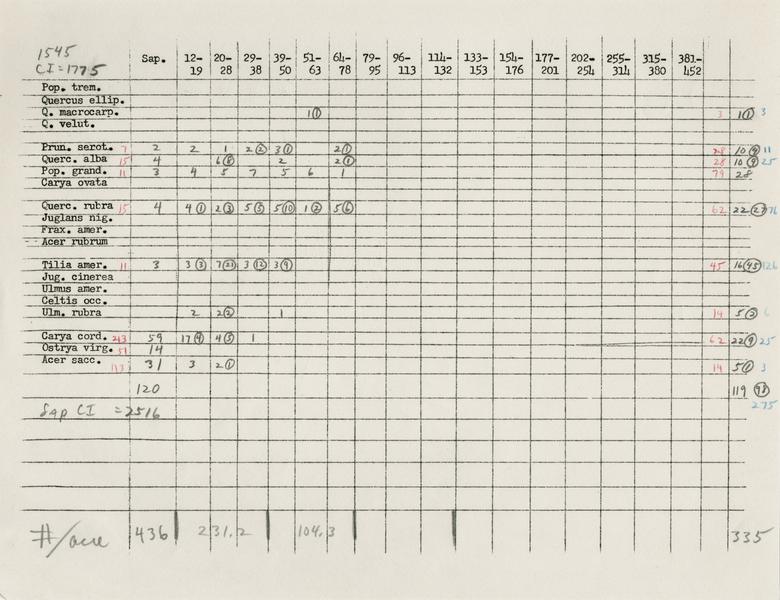 1545
CI=1775
Sap. 12-19 20-28 29-38 39-50 51-63 64-78 79-95 96-113 114-132 133-153 154-176 177-201 202-254 255-314 315-380 381-452
Pop. trem.
Quercus ellip.
Q. macrocarp. 1 (1) 3 1 (1) 3
Q. velut.
Prun. serot. 7 2 2 1 2 (2) 3 (1) 2 (1) 28 10 (4) 11
Querc. alba 15 4 6 (8) 2 2 (1) 28 10 (9) 25
Pop. grand. 11 3 4 5 7 5 6 1 79 28
Carya ovata
Querc. rubra 15 4 4 (1) 2 (3) 5 (5) 5 (10) 1 (2) 5 (6) 62 22 (27) 76
Juglans nig.
Frax. amer.
Acer rubrum
Tilia amer. 11 3 3 (3) 7 (21) 3 (12) 3 (9) 45 16 (45) 126
Jug. cinerea
Ulmus amer.
Celtis occ.
Ulm. rubra 2 2 (2) 1 14 5 (2) 6
Carya cord. 213 59 17 (4) 4 (5) 1 62 22 (9) 25
Ostrya virg. 51 14
Acer sacc. 113 31 3 2 (1) 14 5 (1) 3
120 119 (98)
275
Sap CI = 2516
#/acre 436 231.2 104.3 335